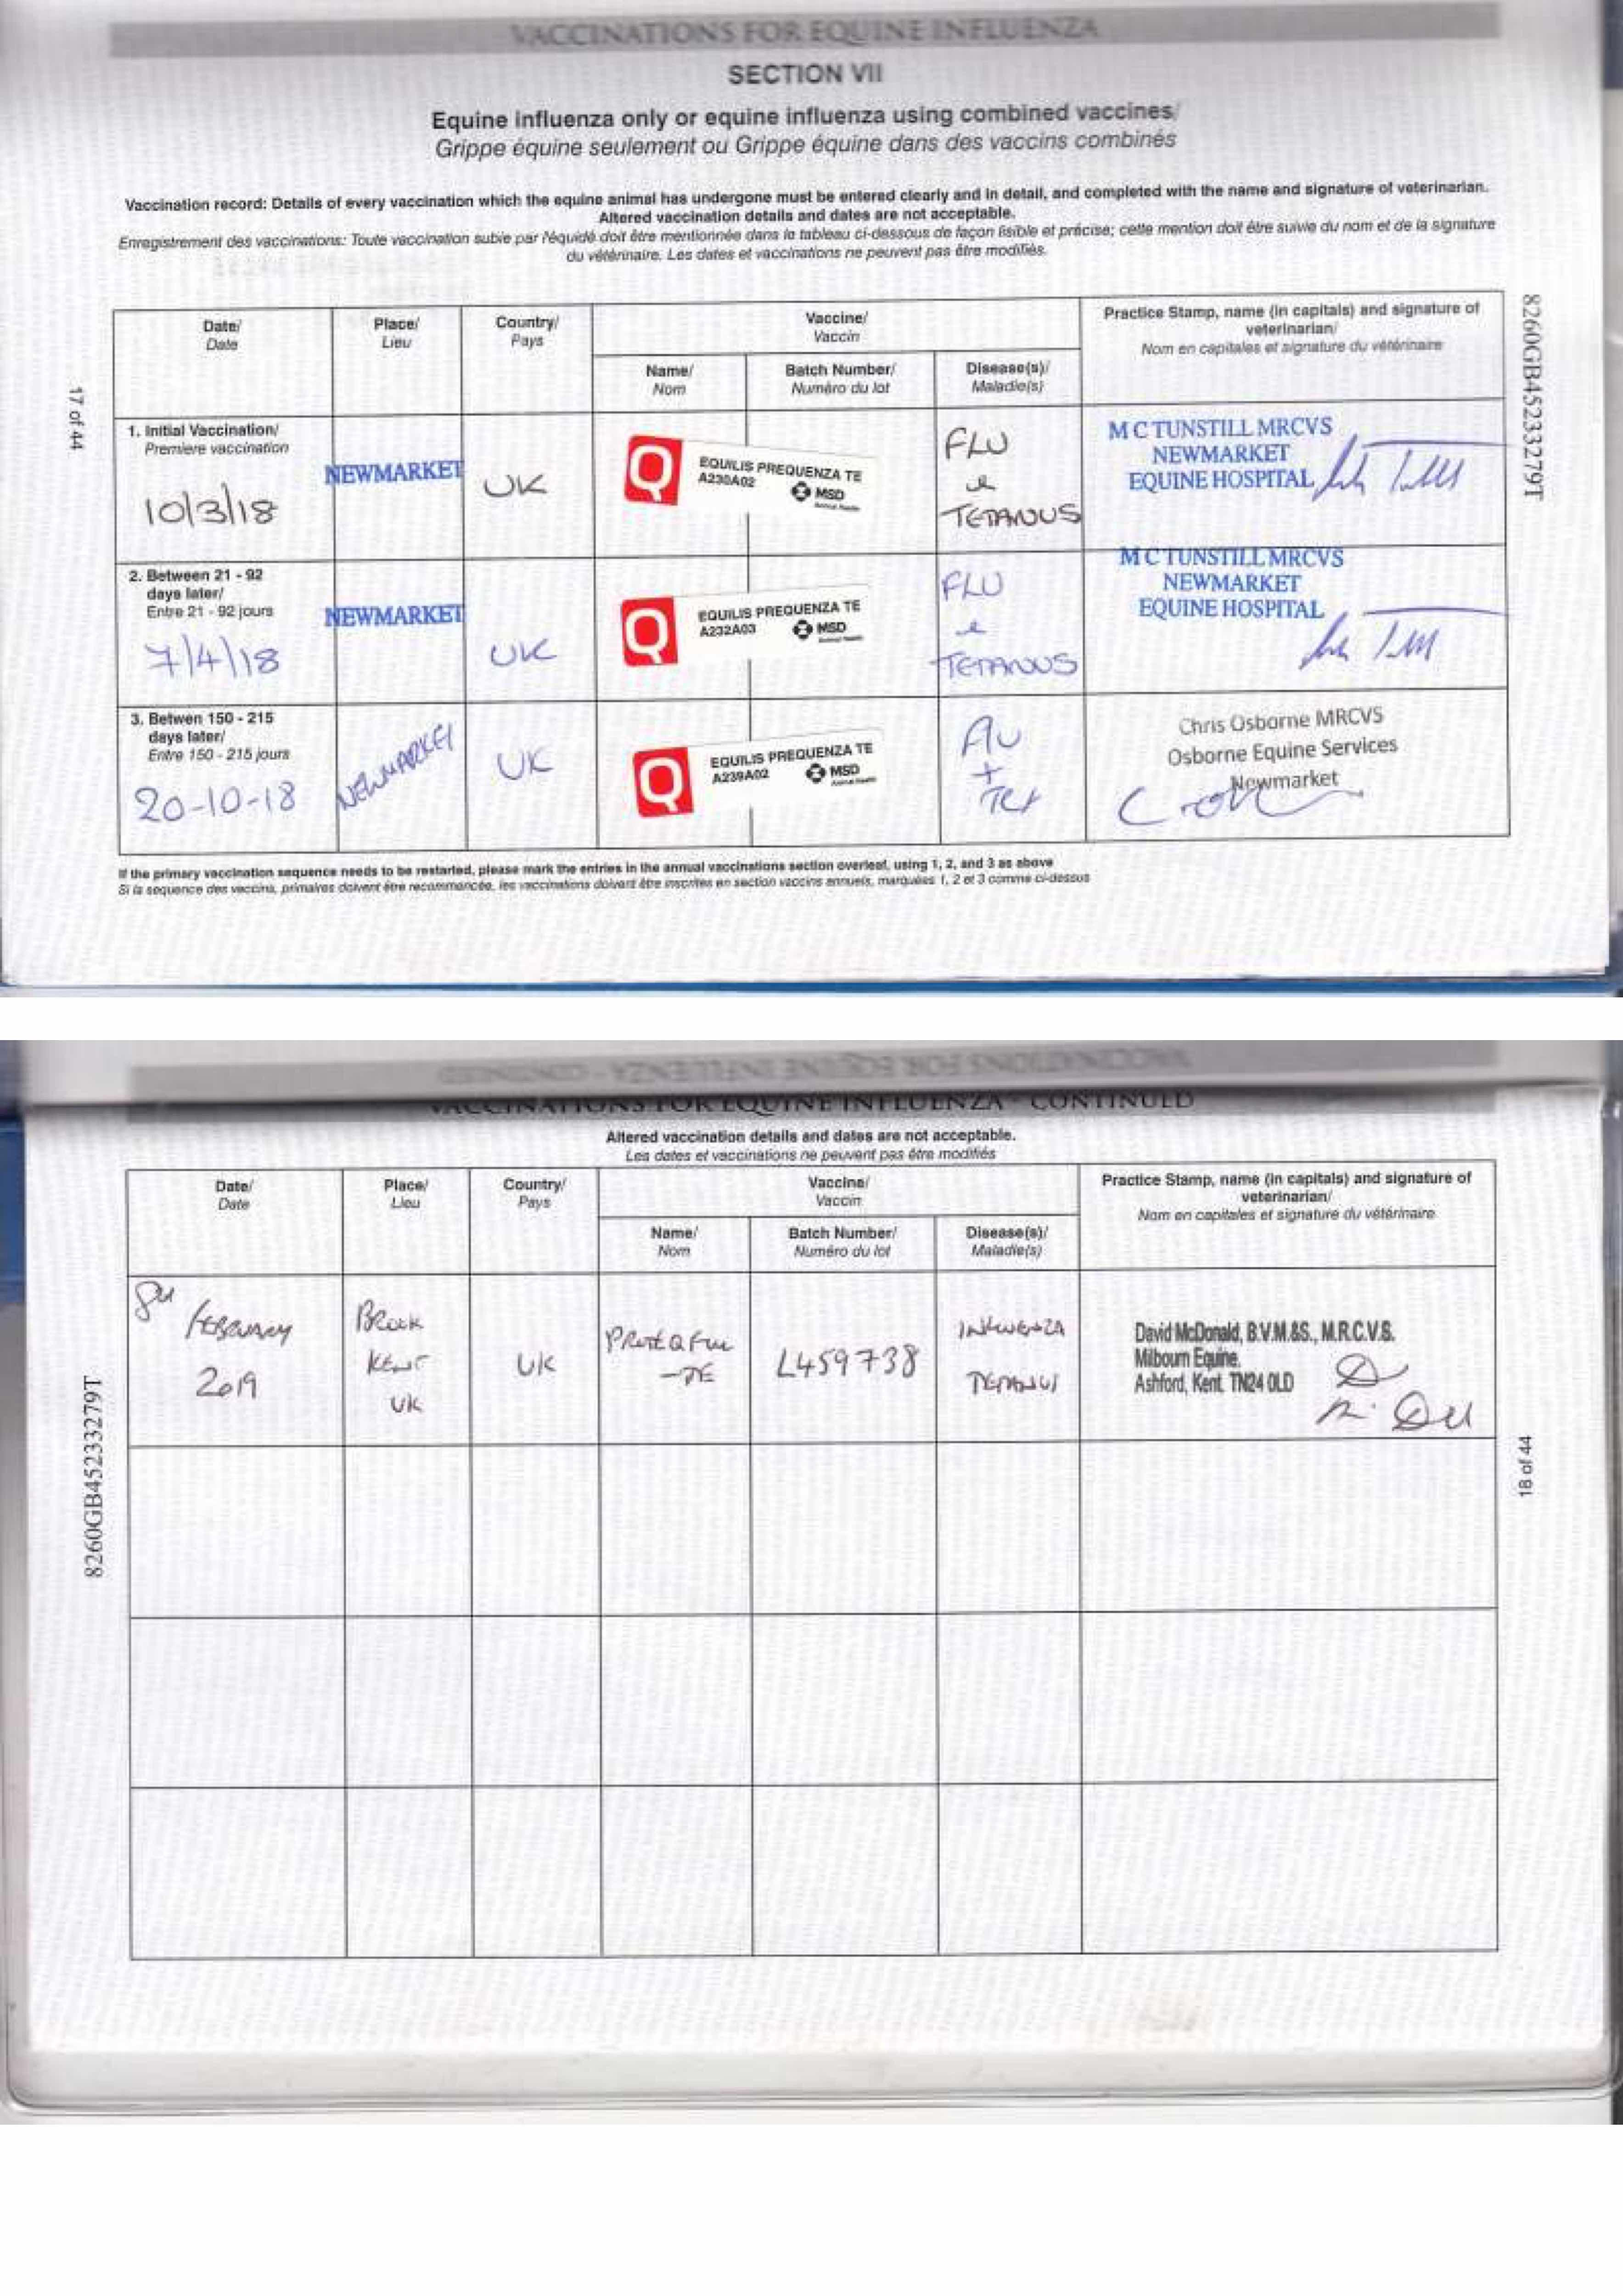 VACCINATIONS FOR EQUINE INFLUENZA
SECTION VII
Equine influenza only or equine influenza using combined vaccines/
Grippe équine seulement ou Grippe équine dans des vaccins combinés
Vaccination record: Details of every vaccination which the equine animal has undergone must be entered clearly and in detail, and completed with the name and signature of veterinarian.
Altered vaccination details and dates are not acceptable.
Enregistrement des vaccinations: Toute vaccination subie par l'équidé doit être mentionnée dans le tableau ci-dessous de façon lisible et précise; cette mention doit être suivie du nom et de la signature
du vétérinaire. Les dates et vaccinations ne peuvent pas être modifiés.
17 of 44
8260GB45233279T
Date/
Date
Place/
Lieu
Country/
Pays
Vaccine/
Vaccin
Name/
Nom
Batch Number/
Numéro du lot
Disease(s)/
Maladie(s)
Practice Stamp, name (in capitals) and signature of
veterinarian/
Nom en capitales et signature du vétérinaire
1. Initial Vaccination/
Premiere vaccination
10/3/18
NEWMARKET
UK
Q
EQUILIS PREQUENZA TE
A230A02
MSD
Animal Health
FLU
&
TETANUS
M C TUNSTILL MRCVS
NEWMARKET
EQUINE HOSPITAL
2. Between 21 - 92
days later/
Entre 21 - 92 jours
7/4/18
NEWMARKET
UK
Q
EQUILIS PREQUENZA TE
A232A03
MSD
Animal Health
FLU
&
TETANUS
M C TUNSTILL MRCVS
NEWMARKET
EQUINE HOSPITAL
3. Betwen 150 - 215
days later/
Entre 150 - 215 jours
20-10-18
NEWMARKET
UK
Q
EQUILIS PREQUENZA TE
A239A02
MSD
Animal Health
Flu
+
Tet
Chris Osborne MRCVS
Osborne Equine Services
Newmarket
If the primary vaccination sequence needs to be restarted, please mark the entries in the annual vaccinations section overleaf, using 1, 2, and 3 as above
Si la sequence des vaccins, primaires doivent être recommancée, les vaccinations doivent être inscrites en section vaccins annuels, marquées 1, 2 et 3 comme ci-dessus
VACCINATIONS FOR EQUINE INFLUENZA - CONTINUED
Altered vaccination details and dates are not acceptable.
Les dates et vaccinations ne peuvent pas être modifiés
8260GB45233279T
18 of 44
Date/
Date
Place/
Lieu
Country/
Pays
Vaccine/
Vaccin
Name/
Nom
Batch Number/
Numéro du lot
Disease(s)/
Maladie(s)
Practice Stamp, name (in capitals) and signature of
veterinarian/
Nom en capitales et signature du vétérinaire
8th
FEBRUARY
2019
BROOK
KENT
UK
UK
PROTEQFLU
-TE
L459738
INFLUENZA
TETANUS
David McDonald, B.V.M.&S., M.R.C.V.S.
Milbourn Equine.
Ashford, Kent. TN24 0LD